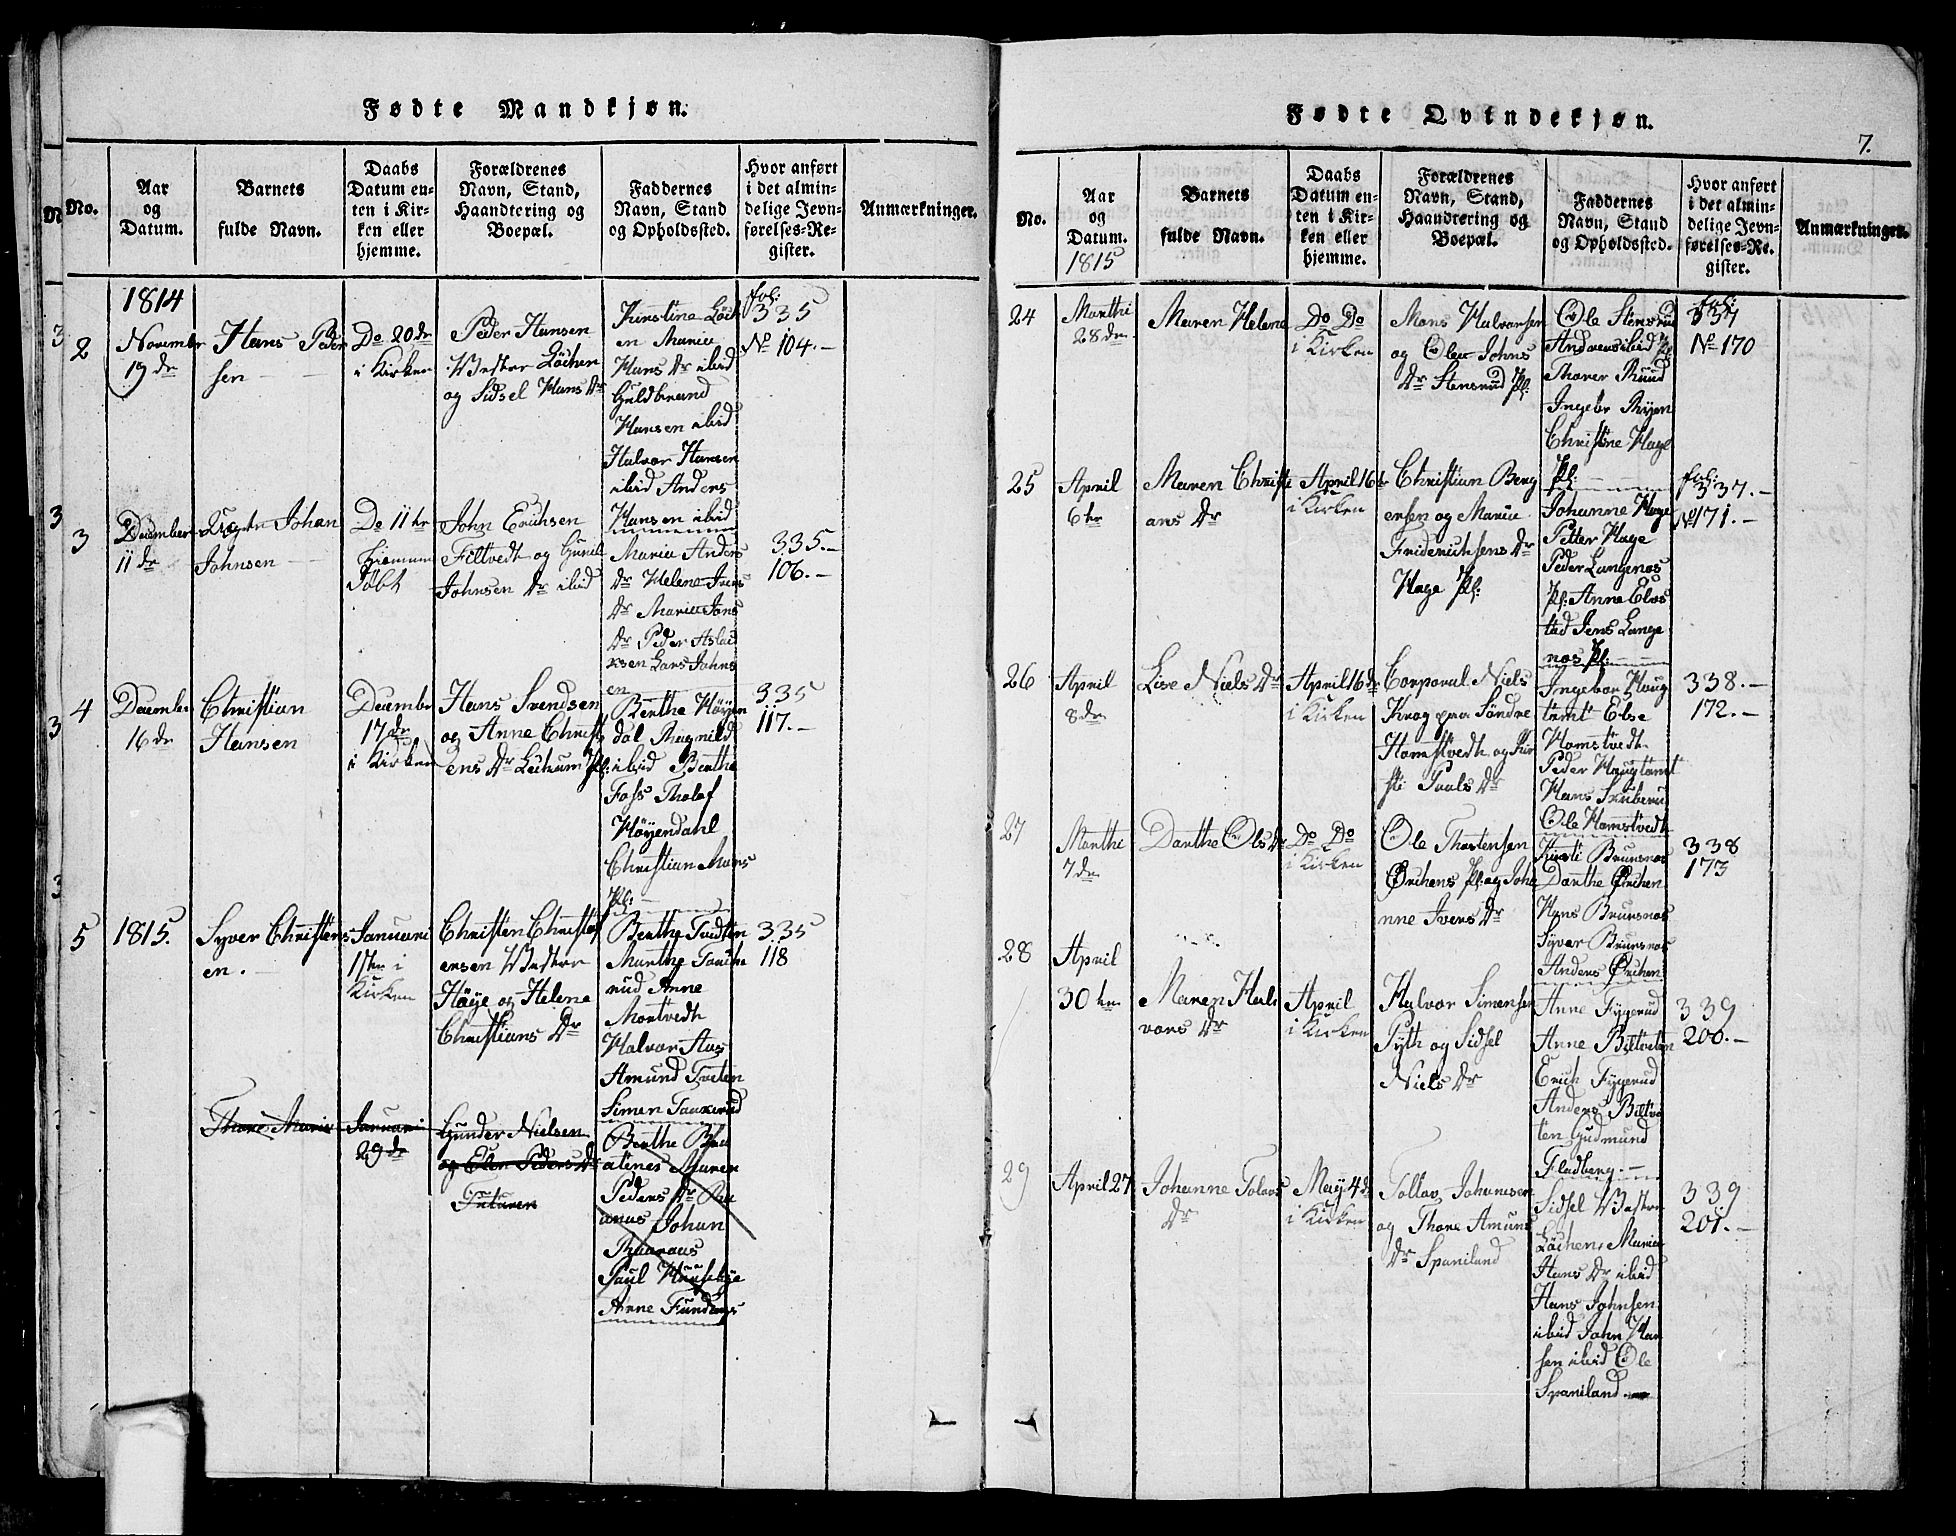 Fødte Mandkjøn.
No.
Aar
og
Datum.
Barnets
fulde Navn.
Daabs
Datum en-
ten i Kir-
ken eller
hjemme.
Forældrenes
Navn, Stand,
Haandtering og
Boepæl.
Faddernes
Navn, Stand
og Opholdssted.
Hvor anført
i det almin-
delige Jevn-
førelses-Re-
gister.
Anmærkninger.
1814
2
Novembr
19de
Hans Peder
sen
Do 20de
i Kirken
Peder Hansen
Vestre Löchen
og Sidsel Hans Dr
Kirstine Löch
en Maria
Hans Dr ibid
Guldbrand
Hansen ibid
Halvor Hansen
ibid Anders
Hansen ibid
fol:
335
No 104.-
3
December
11de
Johan
Johnsen
Do 11te
Hiemme
Döbt
John Erichsen
Filtvedt og Gunil
Johnsen Dr ibid
Maria Anders
Dr Helene Ivers
Dr Maria Jans
Dr Peder Aslac
ksen Lars Johns
en
335.-
106.-
4
December
16de
Christian
Hansen
Decembr
17de
i Kirken
Hans Svendsen
og Anne Christ
ens Dr Lechum Pl:
Berthe Höyen
dal Magnild
ibid Berthe
Foss Tholof
Höyendahl
Christian Moms
Pl:
335
117.-
5
1815.
Syver Christens
en.
Januari
17de i
Kirken
Christen Christof
ersen Vestre
Höye og Helene
Christians Dr
Berthe Tvedten
Marthe
rud Anne
Mortvedt
Halvor Aas
Amund Tveten
Simen
335
118
Thore Marie
Januari
29de
Gunder Nielsen
og Elen Peders Dr
Berthe
Maren
Peders Dr
Johan
Paul
Anne
Fødte Qvindekjøn.
7.
No.
Aar
og
Datum.
1815
Barnets
fulde Navn.
Daabs
Datum en-
ten i Kir-
ken eller
hjemme.
Forældrenes
Navn, Stand,
Haandtering og
Boepæl.
Faddernes
Navn, Stand
og Opholdssted.
Hvor anført
i det almin-
delige Jevn-
førelses-Re-
gister.
Anmærkninger.
24
Marthi
28de
Maren Helene
Do Do
i Kirken
Mons Halvorsen
og Olea Johns
Dr Stensrud Pl:
Ole Stensrud
Andreas ibid Pl:
Maren Ruud
Ingebr Ryen
Christine Hage
Pl:
fol:
337
No 170
25
April
6te
Maren Christi
ans Dr
April 16de
i Kirken
Christian Berg
ersen og Maria
Friderichsens Dr
Hage Pl:
Johanne Hage
Petter Hage
Peder Langenæs
Pl: Anne Elvs
tad Jens Lange
næs Pl:
fol:
337.-
No 171.-
26
April
8de
Lise Niels Dr
April 16de
i Kirken
Corporal Niels
Krog paa Söndre
Homstvedt og Kir
sti Pauls Dr
Ingebor Haug
tomt Else
Homstvedt
Peder Haugtomt
Hans Skuberu
Ole Homstvedt
338.-
172.-
27
Marthi
7de
Dorthe Ols Dr
Do Do
i Kirken
Ole Thostensen
Örchens Pl: og Joha
nne Ivers Dr
Kirsti Brunsnæs
Dorthe Örchen
Hans Brunsnæs
Syver Brunsnæs
Anders Örchen
338
173
28
April
30te
Maren Hal
vors Dr
April
i Kirken
Halvor Simensen
Pyth og Sidsel
Niels Dr
Anne Fygerud
Anne Biltveten
Erich Fygerud
Anders Biltve
ten Gudmund
Fladberg.-
339
200.-
29
April 27
Johanne Tolovs
Dr
May 4de
i Kirken
Tollov Johannsen
og Thore Amunds
Dr Spaniland
Sidsel Vestre
Löchen, Maria
Hans Dr ibid
Hans Johnsen
ibid John Han
sen ibid Ole
Spaniland
339
201.-